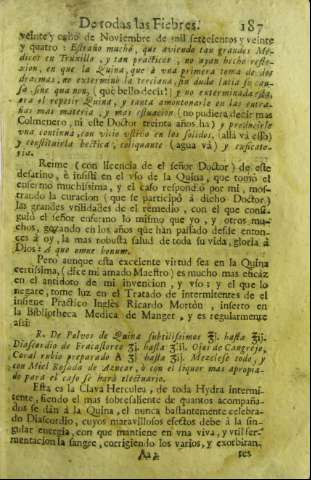 De todas las Fiebres. 187
veinte y ocho de Noviembre de mil setecientos y veinte
y quatro: Estraño mucho, que aviendo tan grandes Me-
dicos en Truxillo, y tan practicos, no ayan hecho refle-
xion, en que la Quina, que à una primera toma de dos
dracmas, no exterminò la terciana, sin duda latia su cau-
sa sine qua non, (què bello decir!) y no exterminada esta-
rà el repetir Quina, y tanta amontonarle en las entra-
ñas mas materia, y mas estuacion (no pudiera decir mas
Colmenero, ni este Doctor treinta años ha) y producirle
una continua, con vicio ustivo en los solidos, (allà và esso)
y constituirla hectica, coliquante (agua và) y sufocato-
ria.
Reime (con licencia de el señor Doctor) de este
desatino, è insistì en el uso de la Quina, que tomò el
enfermo muchissima, y el caso respondiò por mi, mos-
trando la curacion (que se participò à dicho Doctor)
las grandes utilidades de el remedio, con el que consi-
guiò el señor enfermo lo mismo que yo, y otros mu-
chos, gozando en los años que han passado desde enton-
ces à oy, la mas robusta salud de toda su vida, gloria à
Dios: A quo omne bonum.
Pero aunque esta excelente virtud sea en la Quina
certissima, (dice mi amado Maestro) es mucho mas eficàz
en el antidoto de mi invencion, y vio; y el que lo
negare, tome luz en el Tratado de intermitentes de el
insigne Practico Inglès Ricardo Mortòn, inserto en
la Bibliotheca Medica de Manget, y es regularmente
assi:
R. De Polvos de Quina subtilissimos ʒj. hasta ʒij.
Diascordio de Fracastoreo ʒj. hasta ʒij. Ojos de Cangrejo,
Coral rubio preparado A ʒj hasta ʒij. Mezclese todo, y
con Miel Rosada de Azucar, ò con el liquor mas apropia-
do para el caso se harà electuario.
Esta es la Clava Herculea, de toda Hydra intermi-
tente, siendo el mas sobresaliente de quantos acompaña-
dos se dàn à la Quina, el nunca bastantemente celebra-
do Diascordio, cuyos maravillosos efectos debe à la sin-
gular energia, con que mantiene en una viva, y util fer-
mentacion la sangre, corrigiendo los varios, y exorbitan-
Aa 2 tes